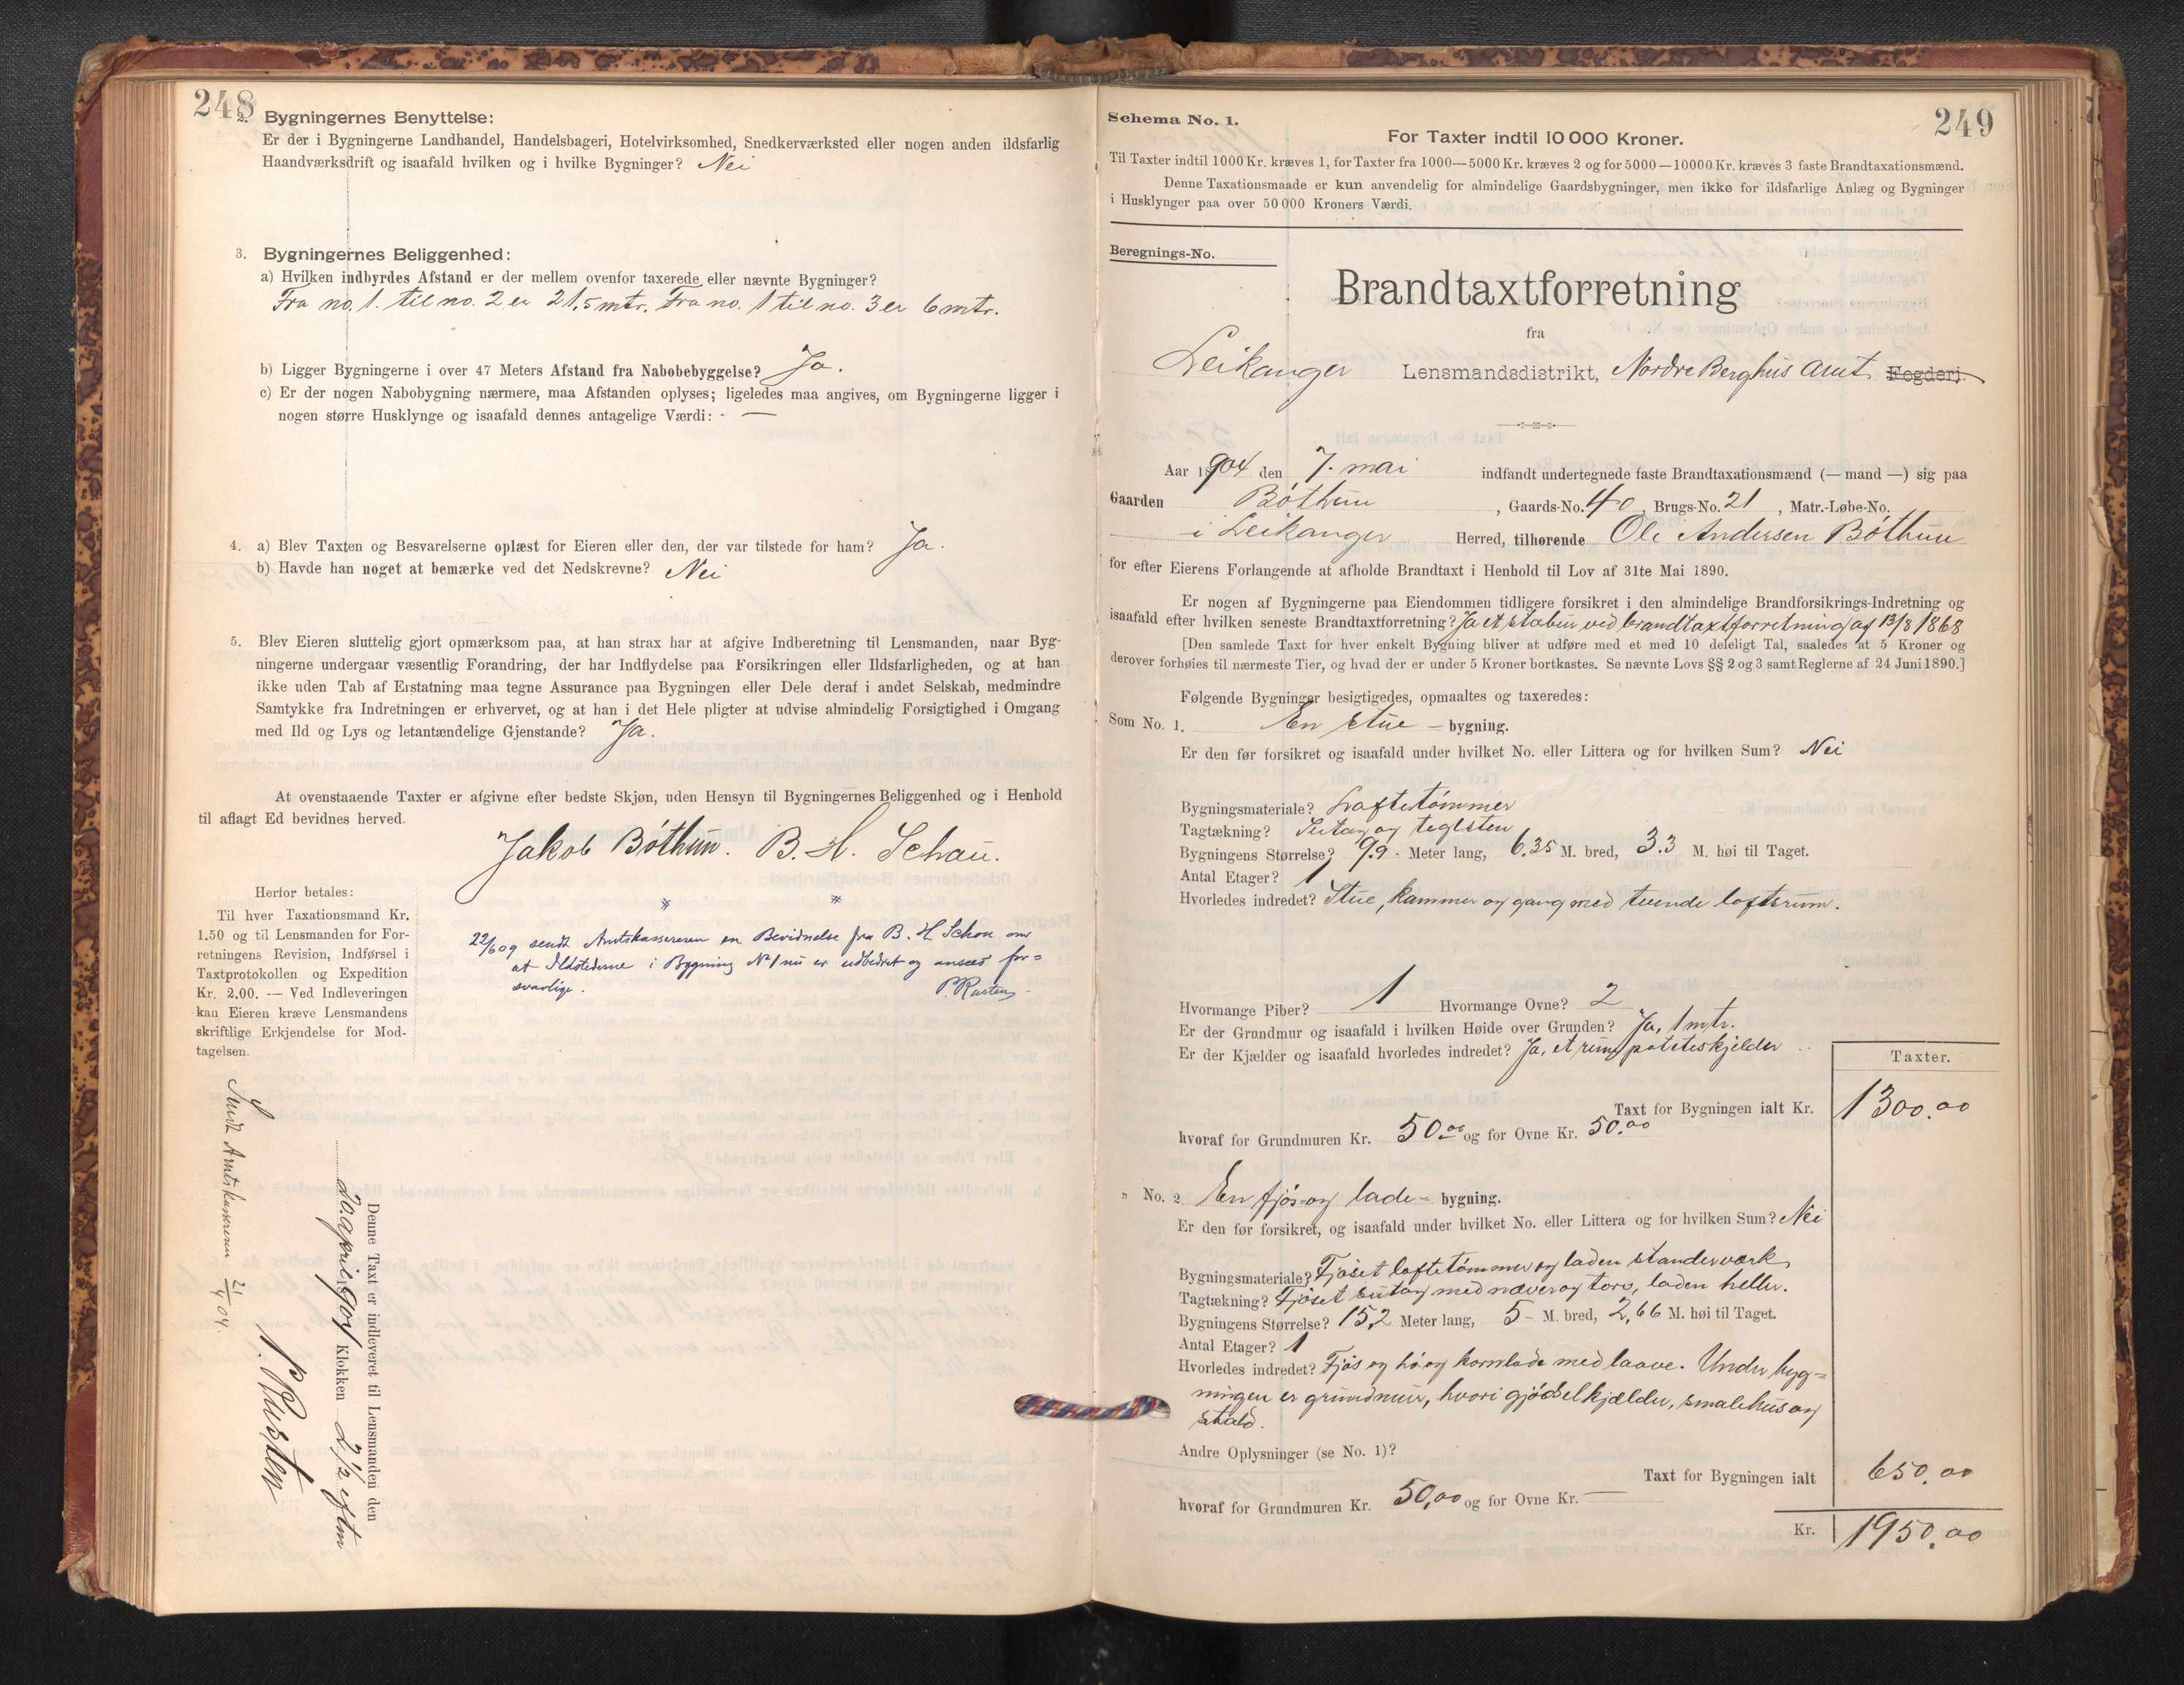 248
2. Bygningernes Benyttelse:
Er der i Bygningerne Landhandel, Handelsbageri, Hotelvirksomhed, Snedkerværksted eller nogen anden ildsfarlig
Haandværksdrift og isaafald hvilken og i hvilke Bygninger? Nei
3. Bygningernes Beliggenhed:
a) Hvilken indbyrdes Afstand er der mellem ovenfor taxerede eller nævnte Bygninger?
Fra no. 1. til no. 2 er 21,5 mtr. Fra no. 1 til no. 3 er 6 mtr.
b) Ligger Bygningerne i over 47 Meters Afstand fra Nabobebyggelse? Ja.
c) Er der nogen Nabobygning nærmere, maa Afstanden oplyses; ligeledes maa angives, om Bygningerne ligger i
nogen større Husklynge og isaafald dennes antagelige Værdi: - —
4. a) Blev Taxten og Besvarelserne oplæst for Eieren eller den, der var tilstede for ham? Ja.
b) Havde han noget at bemærke ved det Nedskrevne? Nei
5. Blev Eieren sluttelig gjort opmærksom paa, at han strax har at afgive Indberetning til Lensmanden, naar Byg-
ningerne undergaar væsentlig Forandring, der har Indflydelse paa Forsikringen eller Ildsfarligheden, og at han
ikke uden Tab af Erstatning maa tegne Assurance paa Bygningen eller Dele deraf i andet Selskab, medmindre
Samtykke fra Indretningen er erhvervet, og at han i det Hele pligter at udvise almindelig Forsigtighed i Omgang
med Ild og Lys og letantændelige Gjenstande? Ja.
At ovenstaaende Taxter er afgivne efter bedste Skjøn, uden Hensyn til Bygningernes Beliggenhed og i Henhold
til aflagt Ed bevidnes herved.
Jakob Bóthun. B. H. Schau.
Herfor betales:
Til hver Taxationsmand Kr.
1.50 og til Lensmanden for For-
retningens Revision, Indførsel i
Taxtprotokollen og Expedition
Kr. 2.00. — Ved Indleveringen
kan Eieren kræve Lensmandens
skriftlige Erkjendelse for Mod-
tagelsen.
22/6 09 sendt Amtskassereren en Bevidnelse fra B. H. Schou om
at Ildstederne i Bygning No 1 nu er udbedret og ansees for=
svarlige. P. Rusten
Denne Taxt er indleveret til Lensmanden den
20. april 1904 Klokken 2 1/2 eftm
P. Rusten
Sendt Amtskassereren 21/4 04.
249
Schema No. 1.
For Taxter indtil 10 000 Kroner.
Til Taxter indtil 1000 Kr. kræves 1, for Taxter fra 1000—5000 Kr. kræves 2 og for 5000—10000 Kr. kræves 3 faste Brandtaxationsmænd.
Denne Taxationsmaade er kun anvendelig for almindelige Gaardsbygninger, men ikke for ildsfarlige Anlæg og Bygninger
i Husklynger paa over 50 000 Kroners Værdi.
Beregnings-No.
Brandtaxtforretning
fra
Leikanger Lensmandsdistrikt, Nordre Berghus Amt. Fogderi.
Aar 1904 den 7. mai indfandt undertegnede faste Brandtaxationsmænd (— mand —) sig paa
Gaarden Bóthun, Gaards-No. 40, Brugs-No. 21, Matr.-Løbe-No.
i Leikanger Herred, tilhørende Ole Andersen Bóthun
for efter Eierens Forlangende at afholde Brandtaxt i Henhold til Lov af 31te Mai 1890.
Er nogen af Bygningerne paa Eiendommen tidligere forsikret i den almindelige Brandforsikrings-Indretning og
isaafald efter hvilken seneste Brandtaxtforretning? Ja et stabur ved brandtaxtforretning af 13/8 1868
[Den samlede Taxt for hver enkelt Bygning bliver at udføre med et med 10 deleligt Tal, saaledes at 5 Kroner og
derover forhøies til nærmeste Tier, og hvad der er under 5 Kroner bortkastes. Se nævnte Lovs §§ 2 og 3 samt Reglerne af 24 Juni 1890.]
Følgende Bygninger besigtigedes, opmaaltes og taxeredes:
Som No. 1. En stue - bygning.
Er den før forsikret og isaafald under hvilket No. eller Littera og for hvilken Sum? Nei
Bygningsmateriale? Loftetómmer
Tagtækning? Sutag og teglsten
Bygningens Størrelse? 9.9 - Meter lang, 6.35 M. bred, 3.3 M. høi til Taget.
Antal Etager? 1
Hvorledes indredet? Stue, kammer og gang med tvende loftsrum.
Hvormange Piber? 1 Hvormange Ovne? 2
Er der Grundmur og isaafald i hvilken Høide over Grunden? Ja, 1 mtr.
Er der Kjælder og isaafald hvorledes indredet? Ja, et rum, poteteskjelder
Taxter.
Taxt for Bygningen ialt Kr. 1300.00
hvoraf for Grundmuren Kr. 50.00 og for Ovne Kr. 50.00
" No. 2 En fjós- og lade - bygning.
Er den før forsikret, og isaafald under hvilket No. eller Littera og for hvilken Sum? Nei
Bygningsmateriale? Fjóset loftetómmer og laden standerværk
Tagtækning? Fjóset sutag med næver og torv, laden heller.
Bygningens Størrelse? 15,2 Meter lang, 5 - M. bred, 2,66 M. høi til Taget.
Antal Etager? 1
Hvorledes indredet? Fjós og hó og kornlade med laave. Under byg=
ningen er grundmur, hvori gjódselkjælder, smalehus og
stald.
Andre Oplysninger (se No. 1)?
Taxt for Bygningen ialt 650.00
hvoraf for Grundmuren Kr. 50,00 og for Ovne Kr. —
Kr. 1950.00